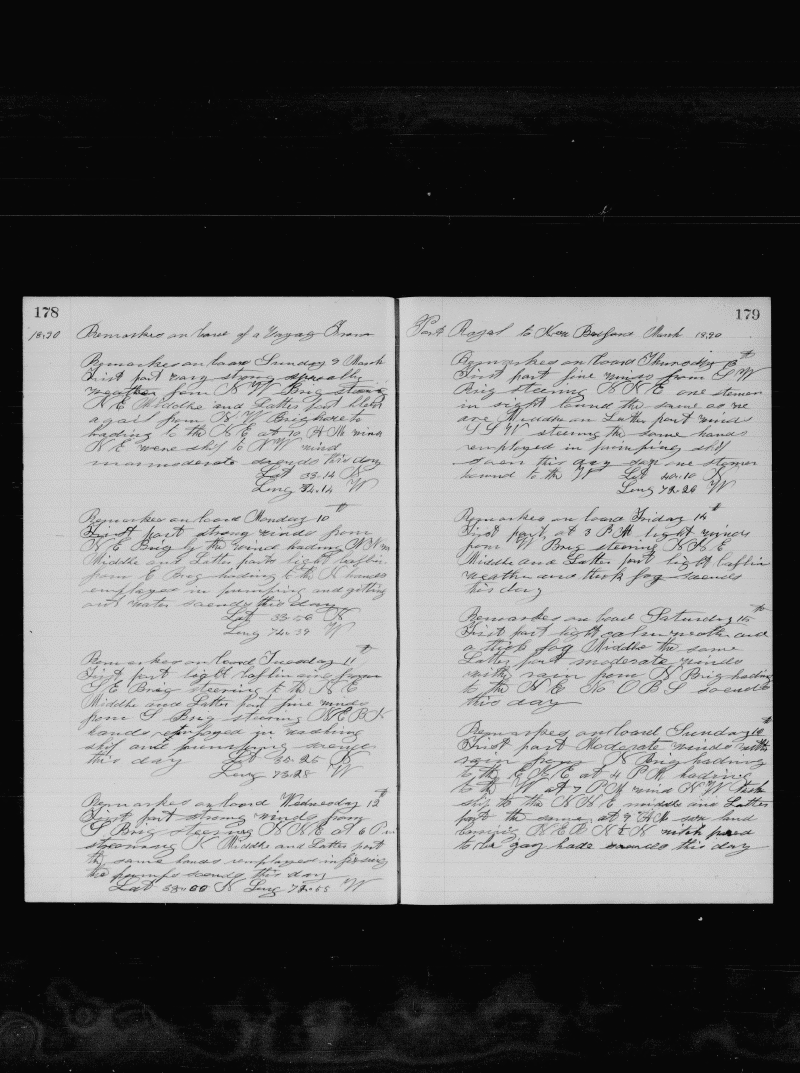 178
18.90 Remarkes on bord of a Voyag From
Remarkes on bord Sunday 9 March
First part vary strong
weather from N W Brig
N E Middle and Latter part
again from N W Brig hove to
hading to the N E at 10 A M wind
N E wore ship to N W wind
mormoderate soends this day
Lat 33.14 N
Long 74.14 W
Remarkes on bord Monday 10th
First part strong winds from
N E Brig by the wind hading
Middle and Latter parts light
from E Brig hading to the N hands
employed in pumping and
out water soends this day
Lat 33.56 N
Long 74.39 W
Remarkes on bord Tuesday 11th
First part light baflin airs from
S E Brig steering to the N E
Middle and Latter part fine winds
from S Brig steering N E B N
hands employed in washing
ship and pumping soends
this day Lat 35.25 N
Long 73.28 W
Remarkes on bord Wednesday 12th
First part strong winds from
S Brig steering N N E at 6 P
steering N Middle and Latter part
the same hands employed in
the pumps soends this day
Lat N Long W
179
Port Royal to New Bedford March 18.90
Remarkes on bord Thursday 13th
First part fine winds from S W
Brig steering N N E one stemer
in sight bound the same as we
are Middle an Latter part winds
S S W steering the same hands
employed in pumping ship
soven this day one stemer
bound to the W Lat 40.10 N
Long W
Remarkes on bord Friday 14th
First part at 3 P M light winds
from W Brig steering N N E
Middle and Latter part light baflin
weather and thick fog soends
this day
Remarkes on bord Saturday 15th
First part light calm weather and
a thick fog Middle the same
Latter part moderate winds
with rain from N Brig hading
to the N E No O B S soends
this day
Remarkes on bord Sunday 16th
First part Moderate winds with
rain from N Brig hading
to the E at 4 P M hading
to the W at 7 P M wind N W tack
ship to the N N E middle and Latter
part the same at 9 A M saw land
bearing N E B N witch proved
to be gay hade soends this day